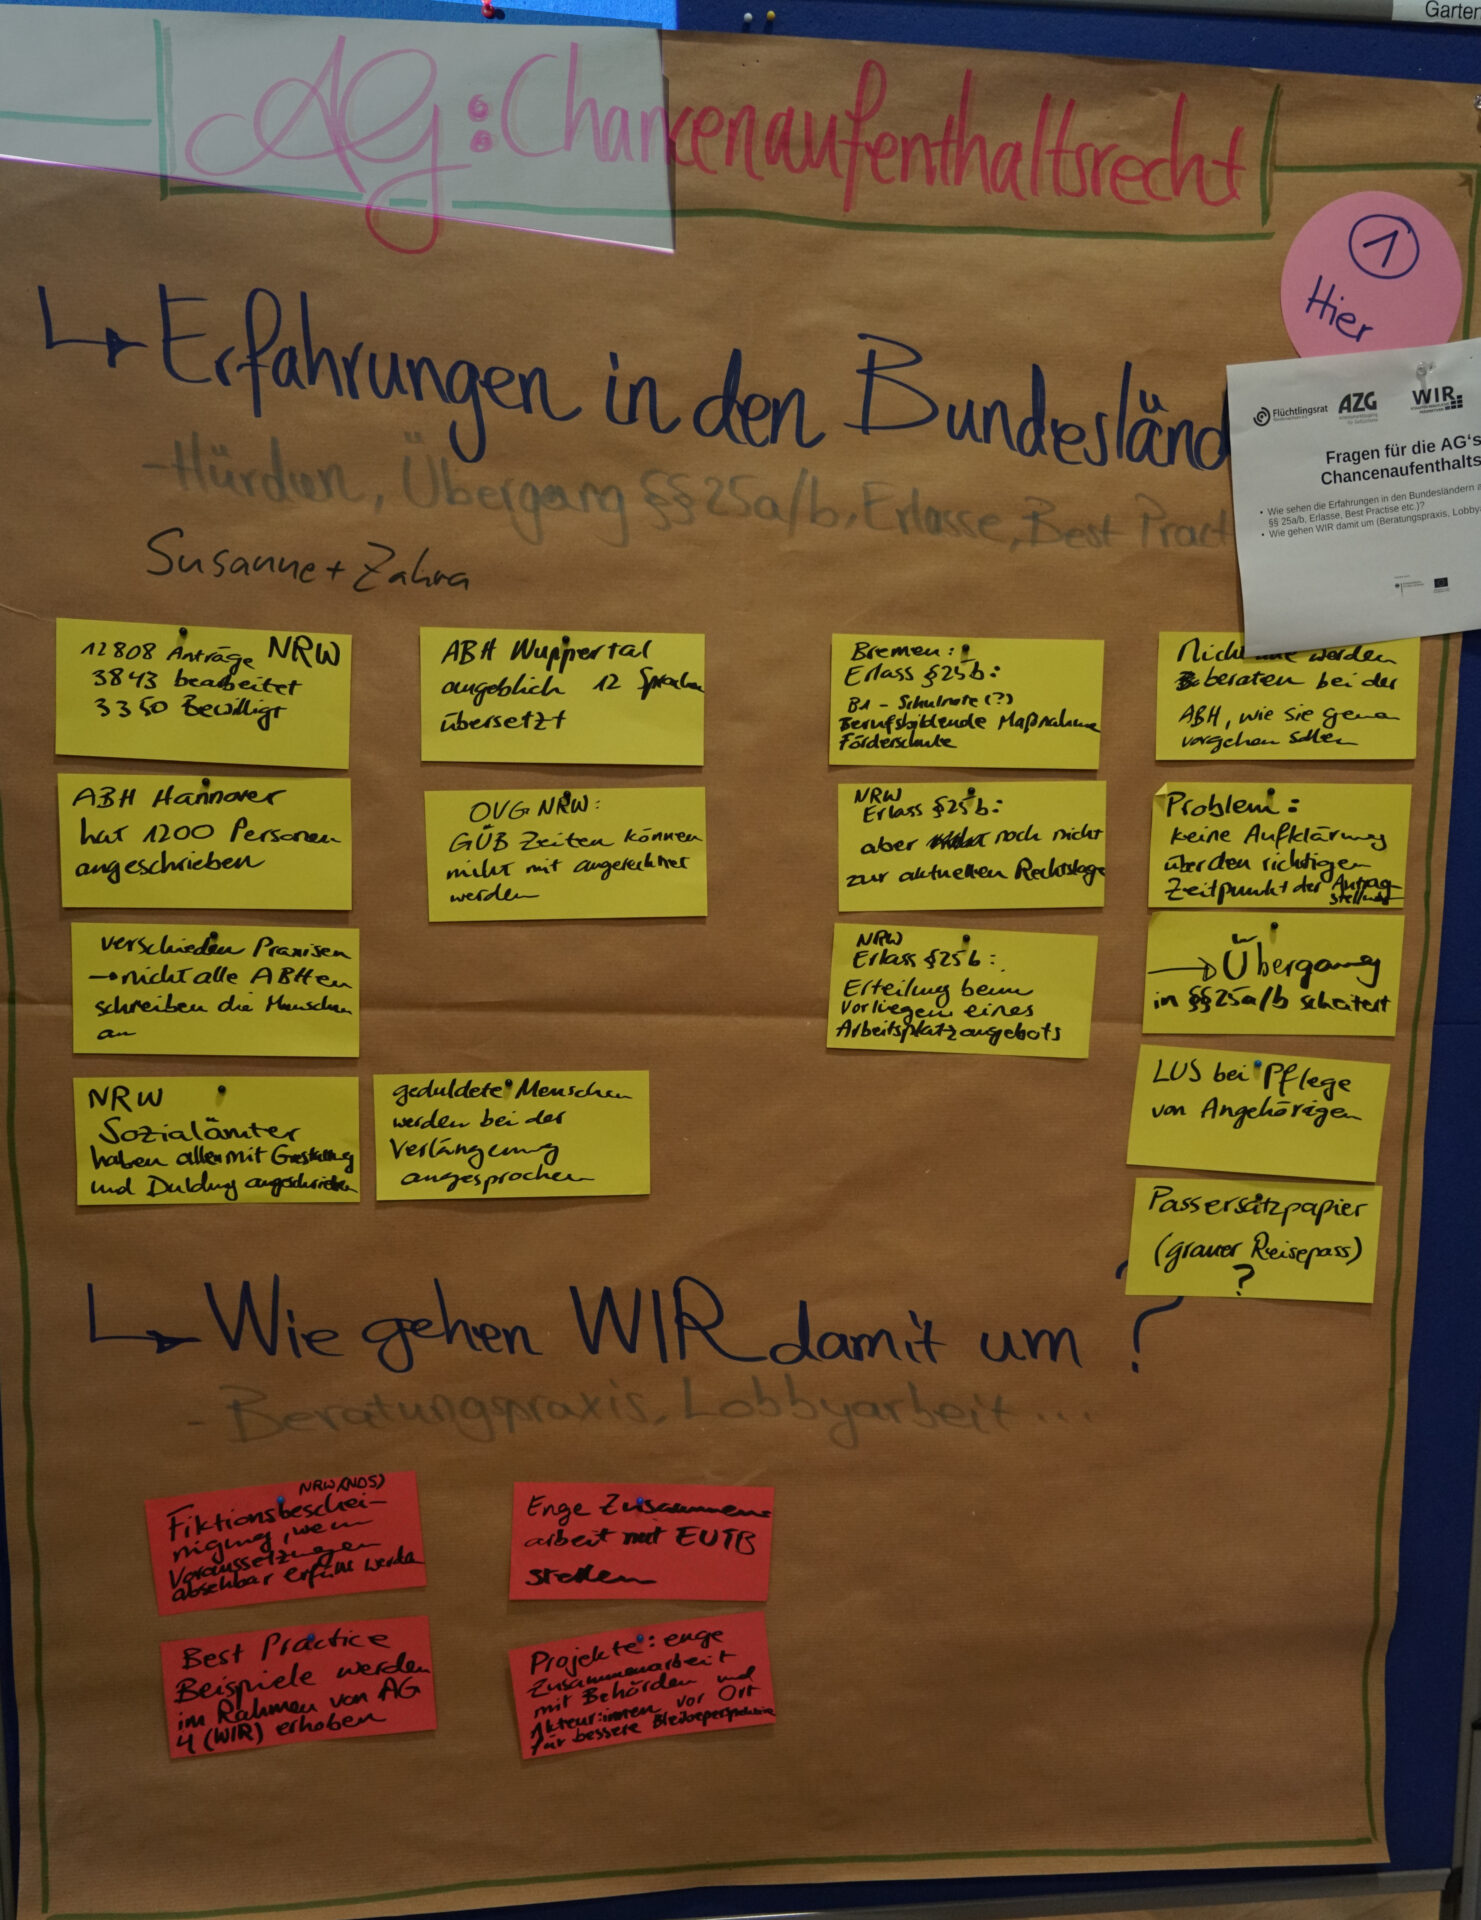 Garten
AG: Chancenaufenthaltsrecht
1
Hier
Erfahrungen in den Bundesländ
-Hürden, Übergang §§ 25a/b, Erlasse, Best Pract
Susanne + Zahra
Flüchtlingsrat
AZG
WIR
Fragen für die AG's
Chancenaufenthalts
• Wie sehen die Erfahrungen in den Bundesländern a
§§ 25a/b, Erlasse, Best Practise etc.)?
• Wie gehen WIR damit um (Beratungspraxis, Lobby
12808 Anträge NRW
3843 bearbeitet
3350 Bewilligt
ABH Hannover
hat 1200 Personen
angeschrieben
verschieden Praxisen
→ nicht alle ABHen
schreiben die Menschen
an
NRW
Sozialämter
haben alle mit Gestattung
und Duldung angeschrieben
geduldete Menschen
werden bei der
Verlängerung
angesprochen
ABH Wuppertal
angeblich 12 Sprachen
übersetzt
OVG NRW:
GÜB Zeiten können
nicht mit angerechnet
werden
Bremen:
Erlass §25b:
B1 - Schulnote (?)
Berufsbildende Maßnahme
Förderschule
NRW
Erlass §25b:
aber noch nicht
zur aktuellen Rechtslage
NRW
Erlass §25b:
Erteilung beim
Vorliegen eines
Arbeitsplatzangebots
Nicht alle werden
beraten bei der
ABH, wie sie genau
vorgehen sollen
Problem:
keine Aufklärung
über den richtigen
Zeitpunkt der Antrag-
stellung
→ Übergang
in §§25a/b scheitert
LUS bei Pflege
von Angehörigen
Passersatzpapier
(grauer Reisepass)
?
Wie gehen WIR damit um?
- Beratungspraxis, Lobbyarbeit...
NRW (NDS)
Fiktionsbeschei-
nigung, wenn
Voraussetzungen
absehbar erfüllt werden
Enge Zusammen-
arbeit mit EUTB
stellen
Best Practice
Beispiele werden
im Rahmen von AG
4 (WIR) erhoben
Projekte: enge
Zusammenarbeit
mit Behörden und
Akteur:innen vor Ort
für bessere Bleibeperspektive